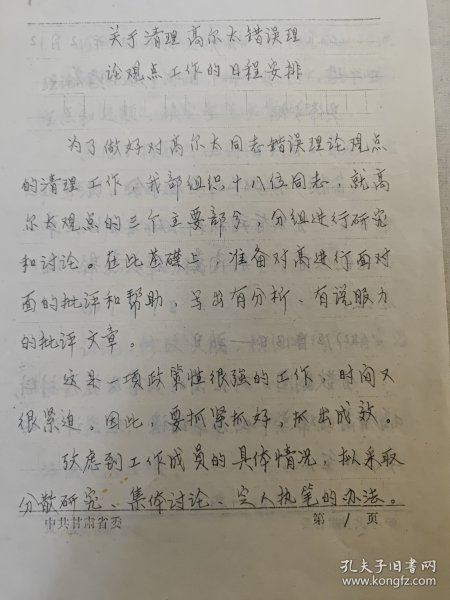 关于清理高尔太错误理
论观点工作的日程安排
为了做好对高尔太同志错误理论观点
的清理工作，我部组织十八位同志，就高
尔太观点的三个主要部分，分组进行研究
和讨论。在此基础上，准备对高进行面对
面的批评和帮助，写出有分析、有说服力
的批评文章。
这是一项政策性很强的工作，时间又
很紧迫。因此，要抓紧抓好，抓出成效。
考虑到工作成员的具体情况，拟采取
分散研究、集体讨论、定人执笔的办法。
中共甘肃省委 第 1 页
孔夫子旧书网
www.kongfz.com